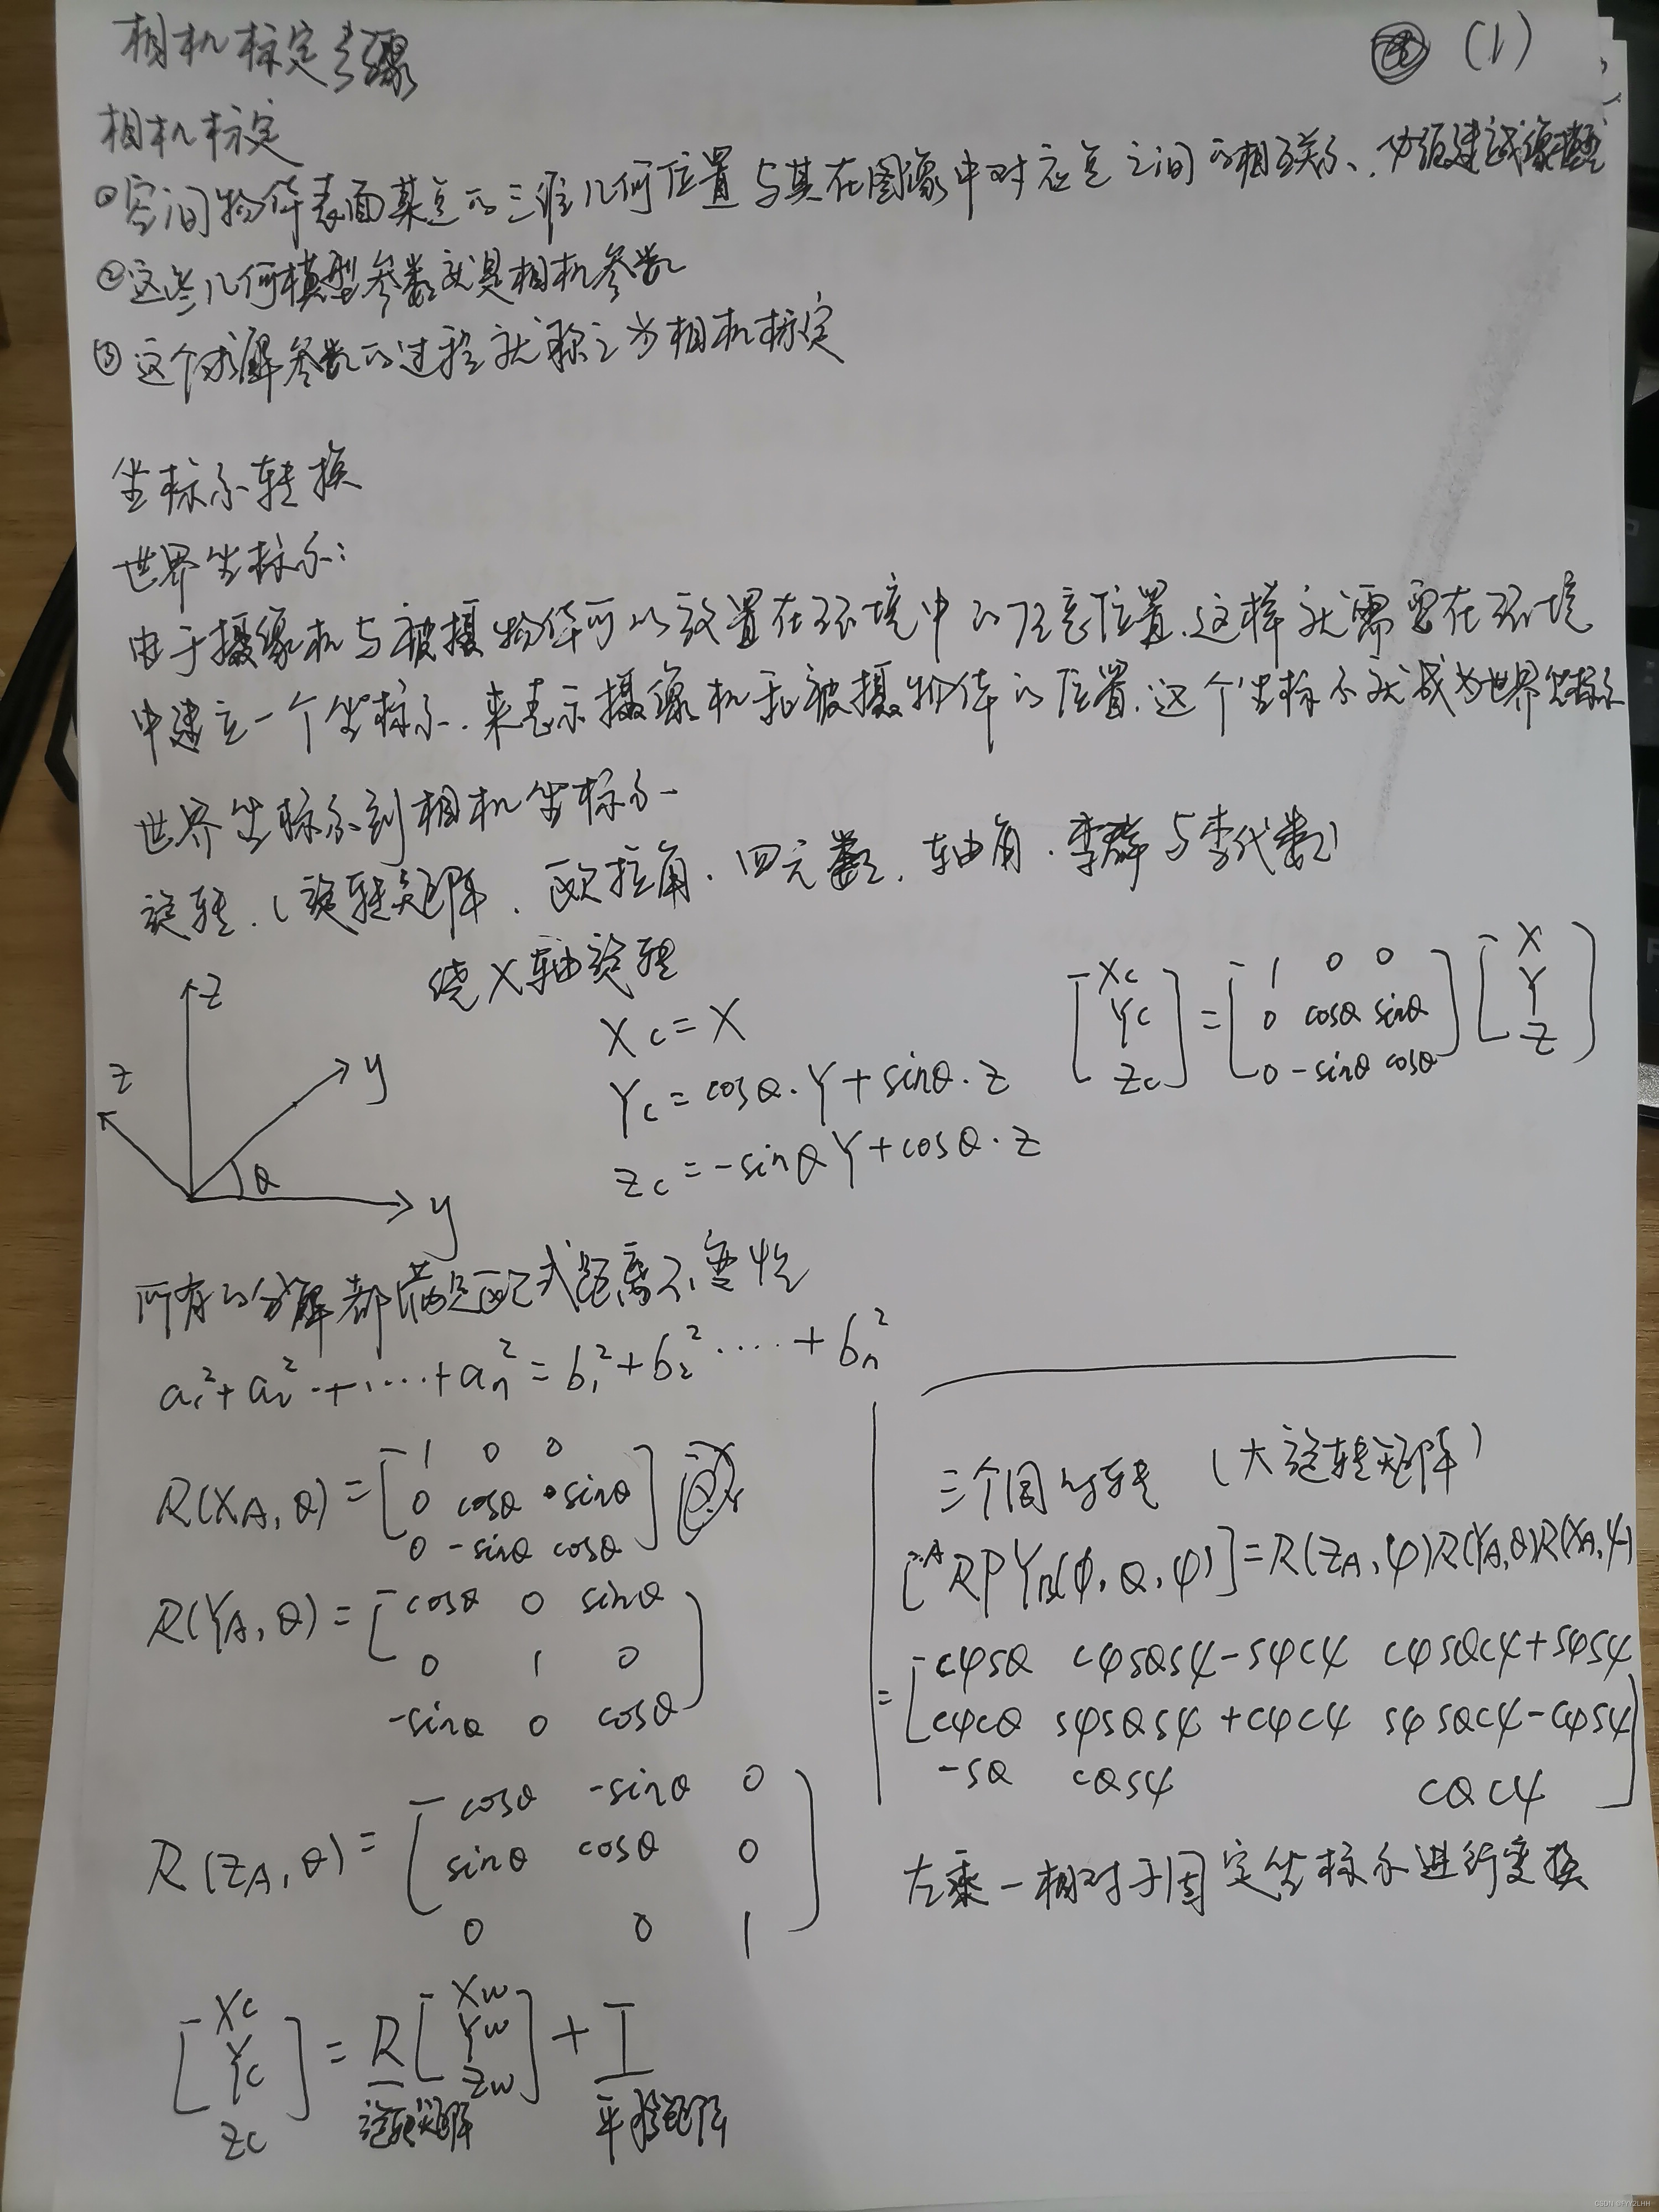 相机标定步骤
(1)
相机标定
①空间物体表面某点的三维几何位置与其在图像中对应点之间的相互关系,必须建成像模型
②这些几何模型参数就是相机参数
③这个求解参数的过程就称之为相机标定
坐标系转换
世界坐标系:
由于摄像机与被摄物体可以放置在环境中的任意位置,这样就需要在环境
中建立一个坐标系,来表示摄像机和被摄物体的位置,这个坐标系就成为世界坐标系
世界坐标系到相机坐标系
旋转.(旋转矩阵.欧拉角.四元数.轴角.李群与李代数)
绕X轴旋转
z
z
y
θ
y
Xc=X
Yc=cosθ·Y+sinθ·z
zc=-sinθY+cosθ·z
[Xc Yc Zc] = [1 0 0; 0 cosθ sinθ; 0 -sinθ cosθ] [X Y Z]
所有的分解都满足欧式距离不变性
a₁²+a₂²+....+aₙ²=b₁²+b₂²....+bₙ²
R(XA,θ)=[1 0 0; 0 cosθ sinθ; 0 -sinθ cosθ]
R(YA,θ)=[cosθ 0 sinθ; 0 1 0; -sinθ 0 cosθ]
R(ZA,θ)=[cosθ -sinθ 0; sinθ cosθ 0; 0 0 1]
[Xc Yc Zc] = R [Xw Yw Zw] + T
旋转矩阵
平移矩阵
三个同时转 (大旋转矩阵)
[ᴬRPYB(φ,θ,ψ)]=R(ZA,φ)R(YA,θ)R(XA,ψ)
=[cφsθ cφsθsψ-sφcψ cφsθcψ+sφsψ
cφcθ sφsθsψ+cφcψ sφsθcψ-cφsψ
-sθ cθsψ cθcψ]
左乘-相对于固定坐标系进行变换